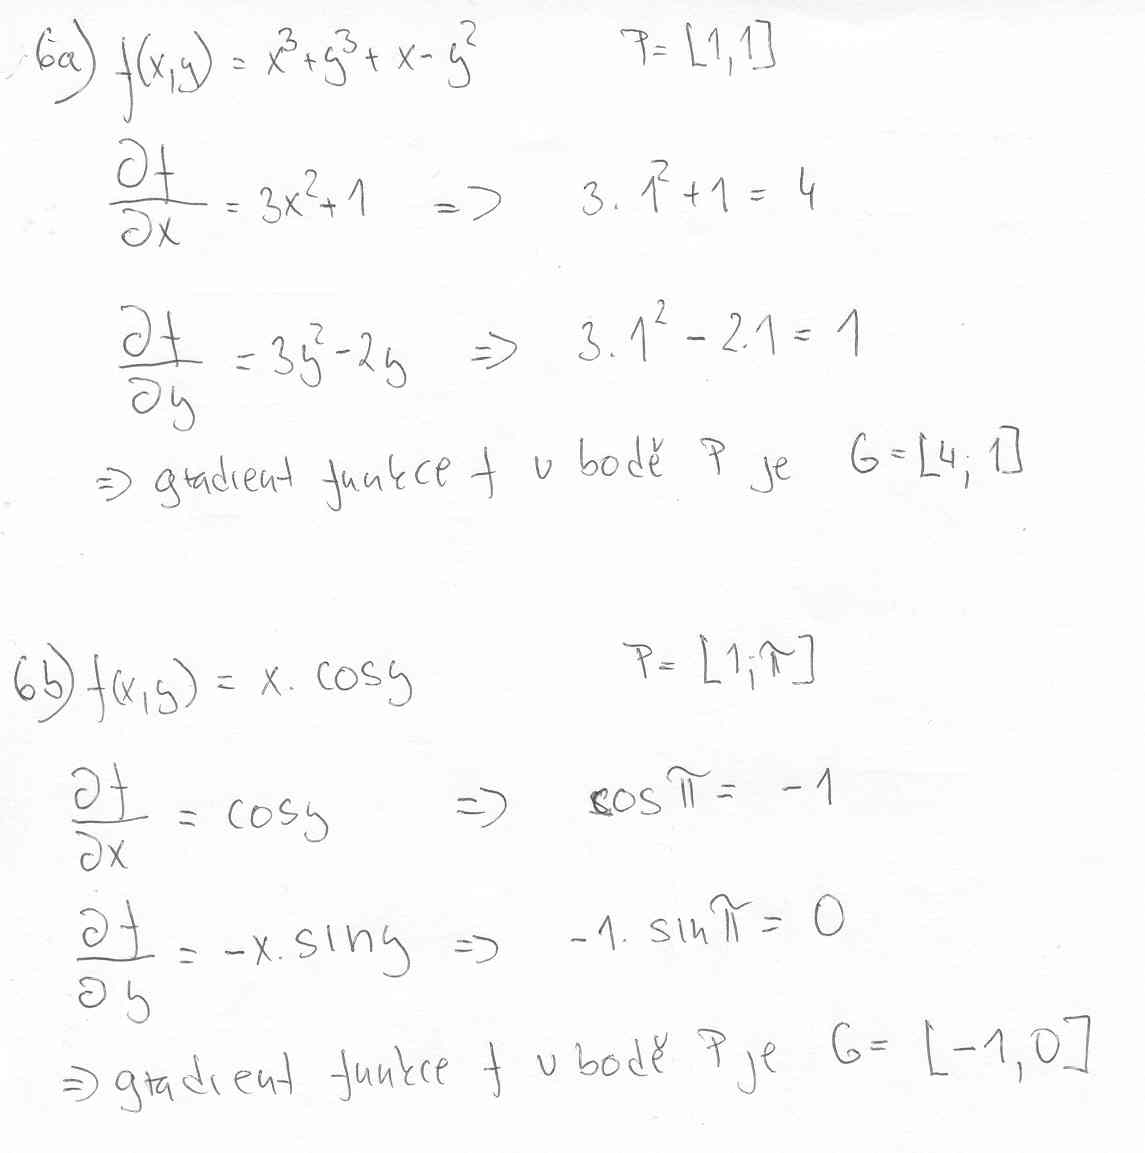 6a) f(x,y) = x³+y³+x-y² P= [1,1]
∂f/∂x = 3x²+1 => 3.1²+1 = 4
∂f/∂y = 3y²-2y => 3.1² - 2.1 = 1
=> gradient funkce f v bodě P je G=[4;1]
6b) f(x,y) = x. cosy P= [1;π]
∂f/∂x = cosy => cosπ = -1
∂f/∂y = -x.siny => -1. sinπ = 0
=> gradient funkce f v bodě P je G= [-1,0]